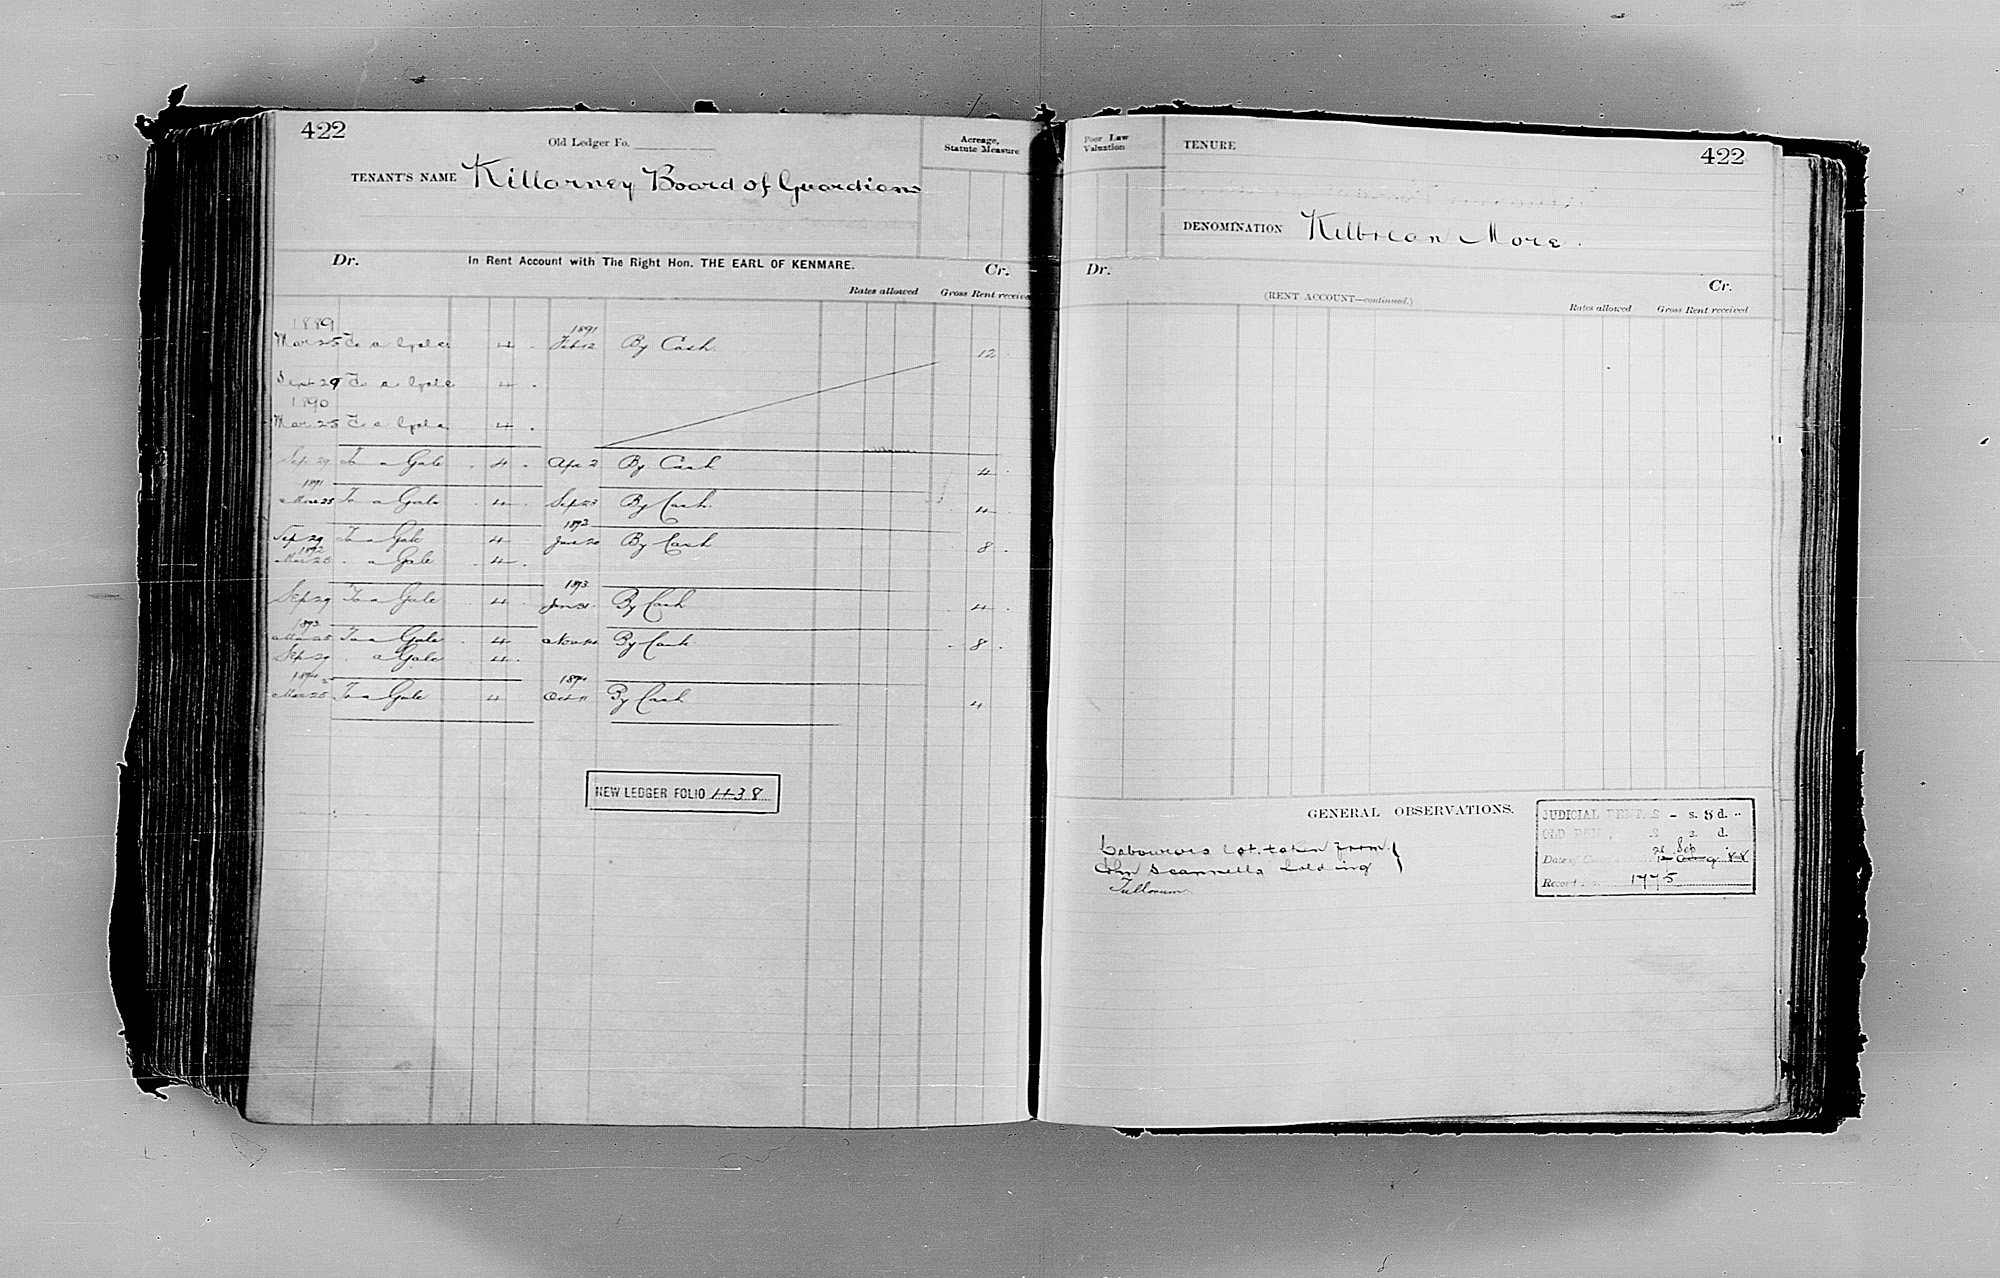 422
Old Ledger Fo.
Acreage,
Statute Measure
TENANT'S NAME Killarney Board of Guardians
Dr. In Rent Account with The Right Hon. THE EARL OF KENMARE. Cr.
Rates allowed Gross Rent received
1889 1891
Mar 25 To a Gale 4 . Feb 12 By Cash 12
Sept 29 To a Gale 4 .
1890
Mar 25 To a Gale 4 .
Sep 29 To a Gale . 4 . Apr 2 By Cash 4 .
1891
Mar 25 To a Gale 4 . Sep 23 By Cash 4 .
1892
Sep 29 To a Gale 4 June 20 By Cash 8 .
1892
Mar 25 . a Gale . 4 .
1893
Sep 29 To a Gale . 4 . Jan 31 By Cash 4 .
1893
Mar 25 To a Gale . 4 Nov By Cash . 8 .
Sep 29 . a Gale 4 .
1894 1894
Mar 25 To a Gale 4 Oct 11 By Cash 4
NEW LEDGER FOLIO 1138
Poor Law
Valuation
TENURE
422
DENOMINATION Kilbrean More.
Dr. Cr.
(RENT ACCOUNT—continued.)
Rates allowed Gross Rent received
GENERAL OBSERVATIONS.
Labourers lot taken from
John Scannells holding
Tullorum
JUDICIAL RENT £ - s. 8 d. "
OLD REN £ s. d.
28 Sep
Date of 88
Record 1775